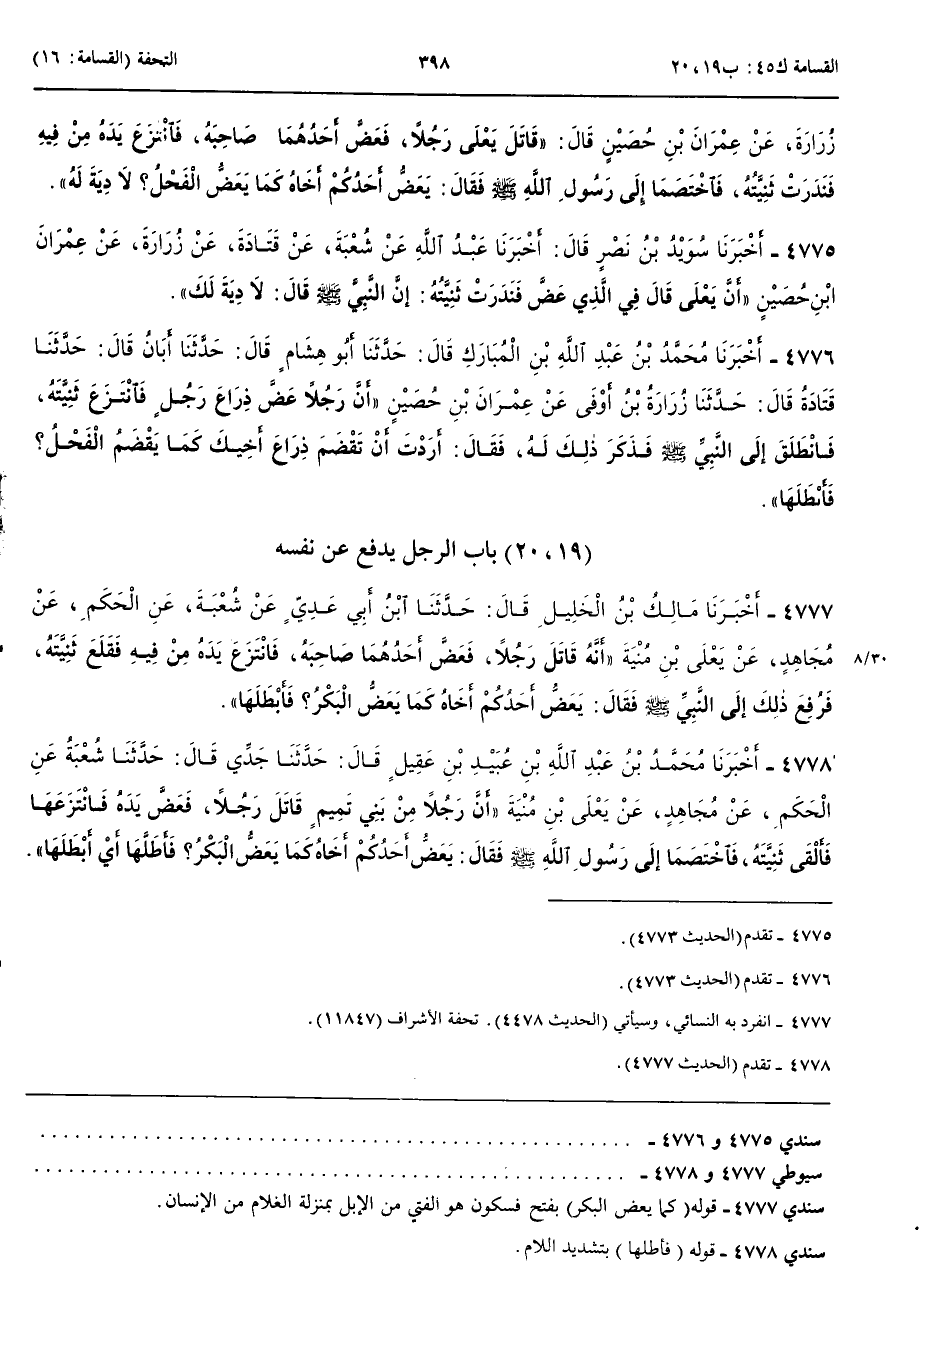 القسامة ك٤٥: ب١٩، ٢٠ ٣٩٨ التحفة (القسامة: ١٦)
زُرَارَةَ، عَنْ عِمْرَانَ بْنِ حُصَيْنٍ قَالَ: «قَاتَلَ يَعْلَى رَجُلًا، فَعَضَّ أَحَدُهُمَا صَاحِبَهُ، فَٱنْتَزَعَ يَدَهُ مِنْ فِيهِ
فَنَدَرَتْ ثَنِيَّتُهُ، فَٱخْتَصَمَا إِلَى رَسُولِ ٱللَّهِ ﷺ فَقَالَ: يَعَضُّ أَحَدُكُمْ أَخَاهُ كَمَا يَعَضُّ الْفَحْلُ؟ لَا دِيَةَ لَهُ».
٤٧٧٥ - أَخْبَرَنَا سُوَيْدُ بْنُ نَصْرٍ قَالَ: أَخْبَرَنَا عَبْدُ ٱللَّهِ عَنْ شُعْبَةَ، عَنْ قَتَادَةَ، عَنْ زُرَارَةَ، عَنْ عِمْرَانَ
ابْنِ حُصَيْنٍ «أَنَّ يَعْلَى قَالَ فِي الَّذِي عَضَّ فَنَدَرَتْ ثَنِيَّتُهُ: إِنَّ النَّبِيَّ ﷺ قَالَ: لَا دِيَةَ لَكَ».
٤٧٧٦ - أَخْبَرَنَا مُحَمَّدُ بْنُ عَبْدِ ٱللَّهِ بْنِ الْمُبَارَكِ قَالَ: حَدَّثَنَا أَبُو هِشَامٍ قَالَ: حَدَّثَنَا أَبَانُ قَالَ: حَدَّثَنَا
قَتَادَةُ قَالَ: حَدَّثَنَا زُرَارَةُ بْنُ أَوْفَى عَنْ عِمْرَانَ بْنِ حُصَيْنٍ «أَنَّ رَجُلًا عَضَّ ذِرَاعَ رَجُلٍ فَٱنْتَزَعَ ثَنِيَّتَهُ،
فَانْطَلَقَ إِلَى النَّبِيِّ ﷺ فَذَكَرَ ذٰلِكَ لَهُ، فَقَالَ: أَرَدْتَ أَنْ تَقْضَمَ ذِرَاعَ أَخِيكَ كَمَا يَقْضَمُ الْفَحْلُ؟
فَأَبْطَلَهَا».
(١٩، ٢٠) باب الرجل يدفع عن نفسه
٤٧٧٧ - أَخْبَرَنَا مَالِكُ بْنُ الْخَلِيلِ قَالَ: حَدَّثَنَا ٱبْنُ أَبِي عَدِيٍّ عَنْ شُعْبَةَ، عَنِ الْحَكَمِ، عَنْ
مُجَاهِدٍ، عَنْ يَعْلَى بْنِ مُنْيَةَ «أَنَّهُ قَاتَلَ رَجُلًا، فَعَضَّ أَحَدُهُمَا صَاحِبَهُ، فَانْتَزَعَ يَدَهُ مِنْ فِيهِ فَقَلَعَ ثَنِيَّتَهُ، ٨/٣٠
فَرُفِعَ ذٰلِكَ إِلَى النَّبِيِّ ﷺ فَقَالَ: يَعَضُّ أَحَدُكُمْ أَخَاهُ كَمَا يَعَضُّ الْبَكْرُ؟ فَأَبْطَلَهَا».
٤٧٧٨ - أَخْبَرَنَا مُحَمَّدُ بْنُ عَبْدِ ٱللَّهِ بْنِ عُبَيْدِ بْنِ عَقِيلٍ قَالَ: حَدَّثَنَا جَدِّي قَالَ: حَدَّثَنَا شُعْبَةُ عَنِ
الْحَكَمِ، عَنْ مُجَاهِدٍ، عَنْ يَعْلَى بْنِ مُنْيَةَ «أَنَّ رَجُلًا مِنْ بَنِي تَمِيمٍ قَاتَلَ رَجُلًا، فَعَضَّ يَدَهُ فَانْتَزَعَهَا
فَأَلْقَى ثَنِيَّتَهُ، فَٱخْتَصَمَا إِلَى رَسُولِ ٱللَّهِ ﷺ فَقَالَ: يَعَضُّ أَحَدُكُمْ أَخَاهُ كَمَا يَعَضُّ الْبَكْرُ؟ فَأَطَلَّهَا أَيْ أَبْطَلَهَا».
٤٧٧٥ - تقدم (الحديث ٤٧٧٣).
٤٧٧٦ - تقدم (الحديث ٤٧٧٣).
٤٧٧٧ - انفرد به النسائي، وسيأتي (الحديث ٤٤٧٨). تحفة الأشراف (١١٨٤٧).
٤٧٧٨ - تقدم (الحديث ٤٧٧٧).
سندي ٤٧٧٥ و ٤٧٧٦ - . . . . . . . . . . . . . . . . . . . .
سيوطي ٤٧٧٧ و ٤٧٧٨ - . . . . . . . . . . . . . . . . . . . .
سندي ٤٧٧٧ - قوله( كما يعض البكر) بفتح فسكون هو الفتي من الإبل بمنزلة الغلام من الإنسان.
سندي ٤٧٧٨ - قوله ( فأطلها ) بتشديد اللام.